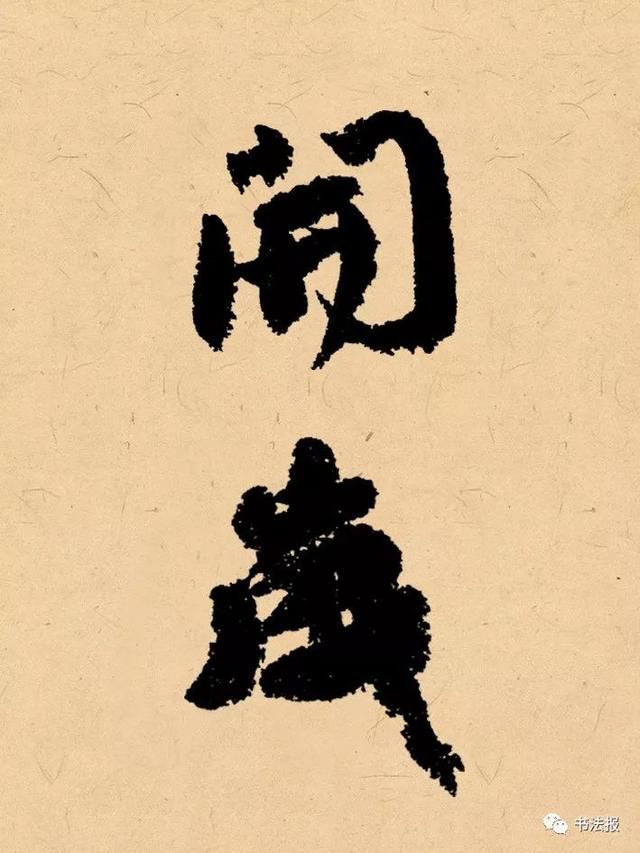 開
歲
书法报